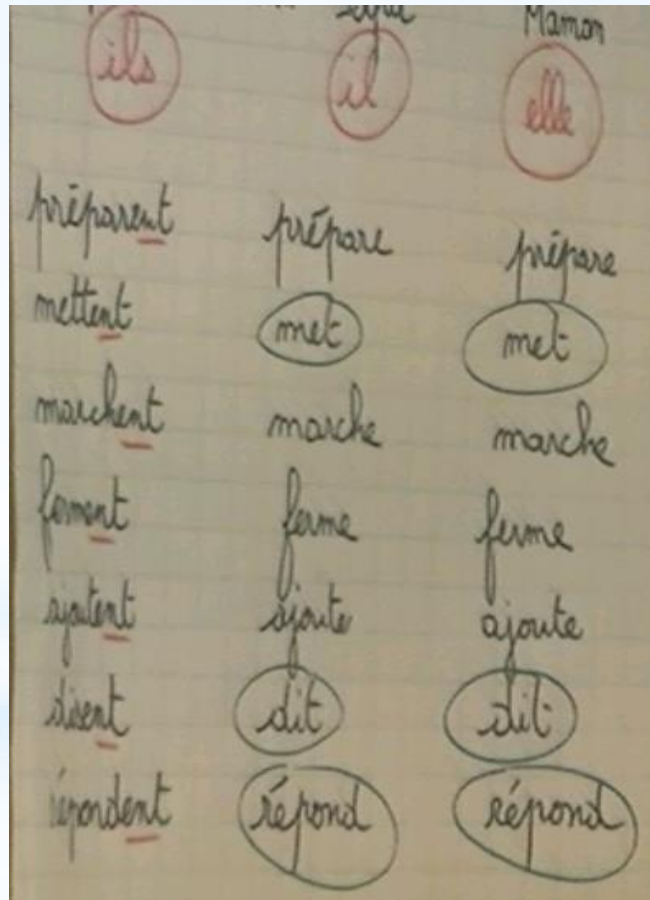 Maman
ils il elle
préparent prépare prépare
mettent met met
marchent marche marche
ferment ferme ferme
ajoutent ajoute ajoute
disent dit dit
répondent répond répond